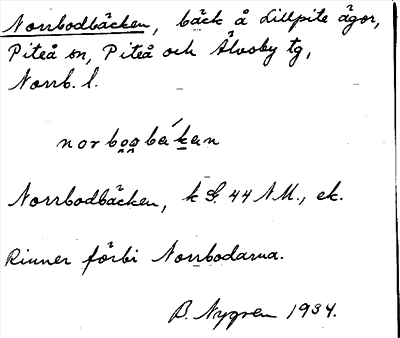 Norrbodbäcken, bäck å Lillpite ägor,
Piteå sn, Piteå och Älvsby tg,
Norrb. l.
norboọbäkan
Norrbodbäcken, k G. 44 N.M., ek.
Rinner förbi Norrbodarna.
B. Nygren 1934.